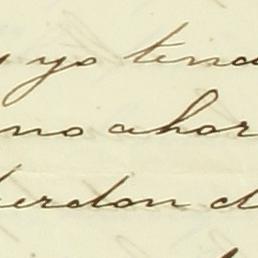 y yo tena
no ahor
perdon d